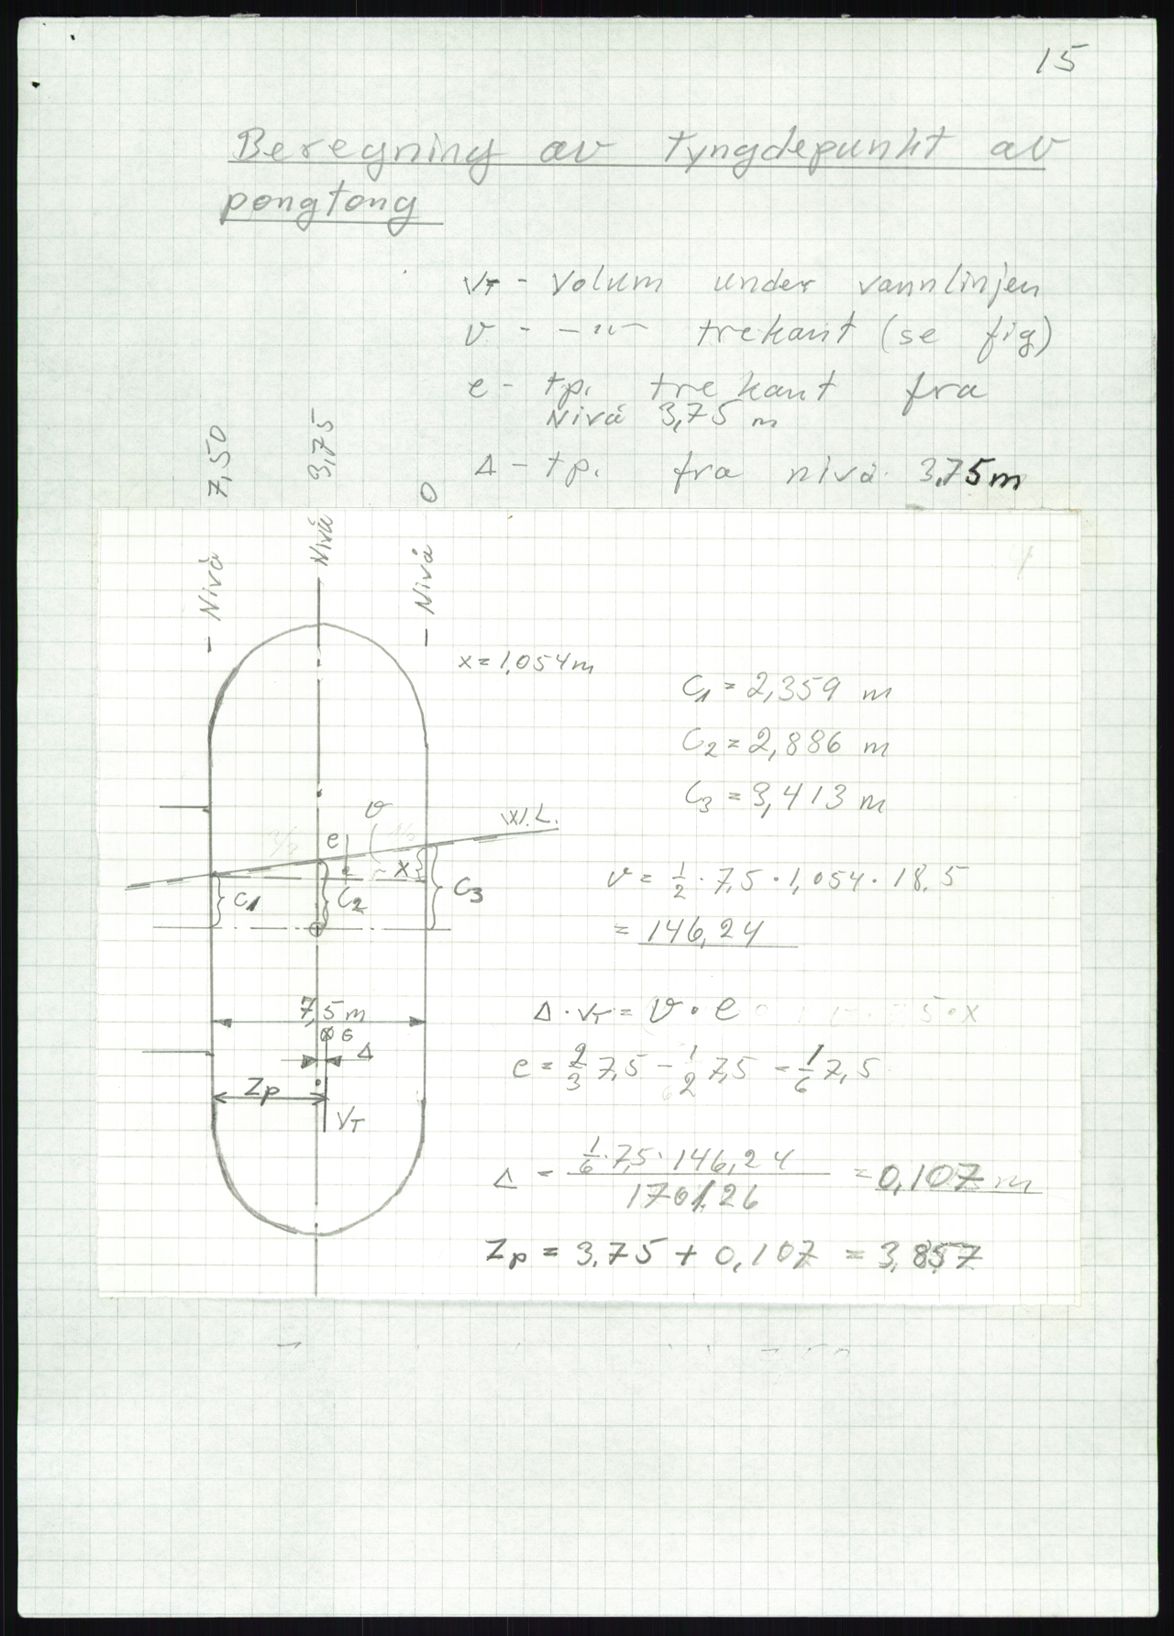 15
Beregning av tyngdepunkt av
pongtong
VT - Volum under vannlinjen
v - -"- trekant (se fig)
e - tp. trekant fra
Nivå 3,75 m
Δ - tp. fra nivå 3,75m
Nivå 7,50
Nivå 3,75
Nivå 0
x = 1,054m
C1 = 2,359 m
C2 = 2,886 m
C3 = 3,413 m
v
W.L.
e
x
C1
C2
C3
v = 1/2 · 7,5 · 1,054 · 18.5
= 146,24
7,5 m
G
Δ
Zp
VT
Δ · VT = v · e
e = 2/3 7,5 - 1/2 7,5 = 1/6 7,5
Δ = 1/6 · 7,5 · 146,24 / 1701.26 = 0,107 m
Zp = 3.75 + 0,107 = 3,857